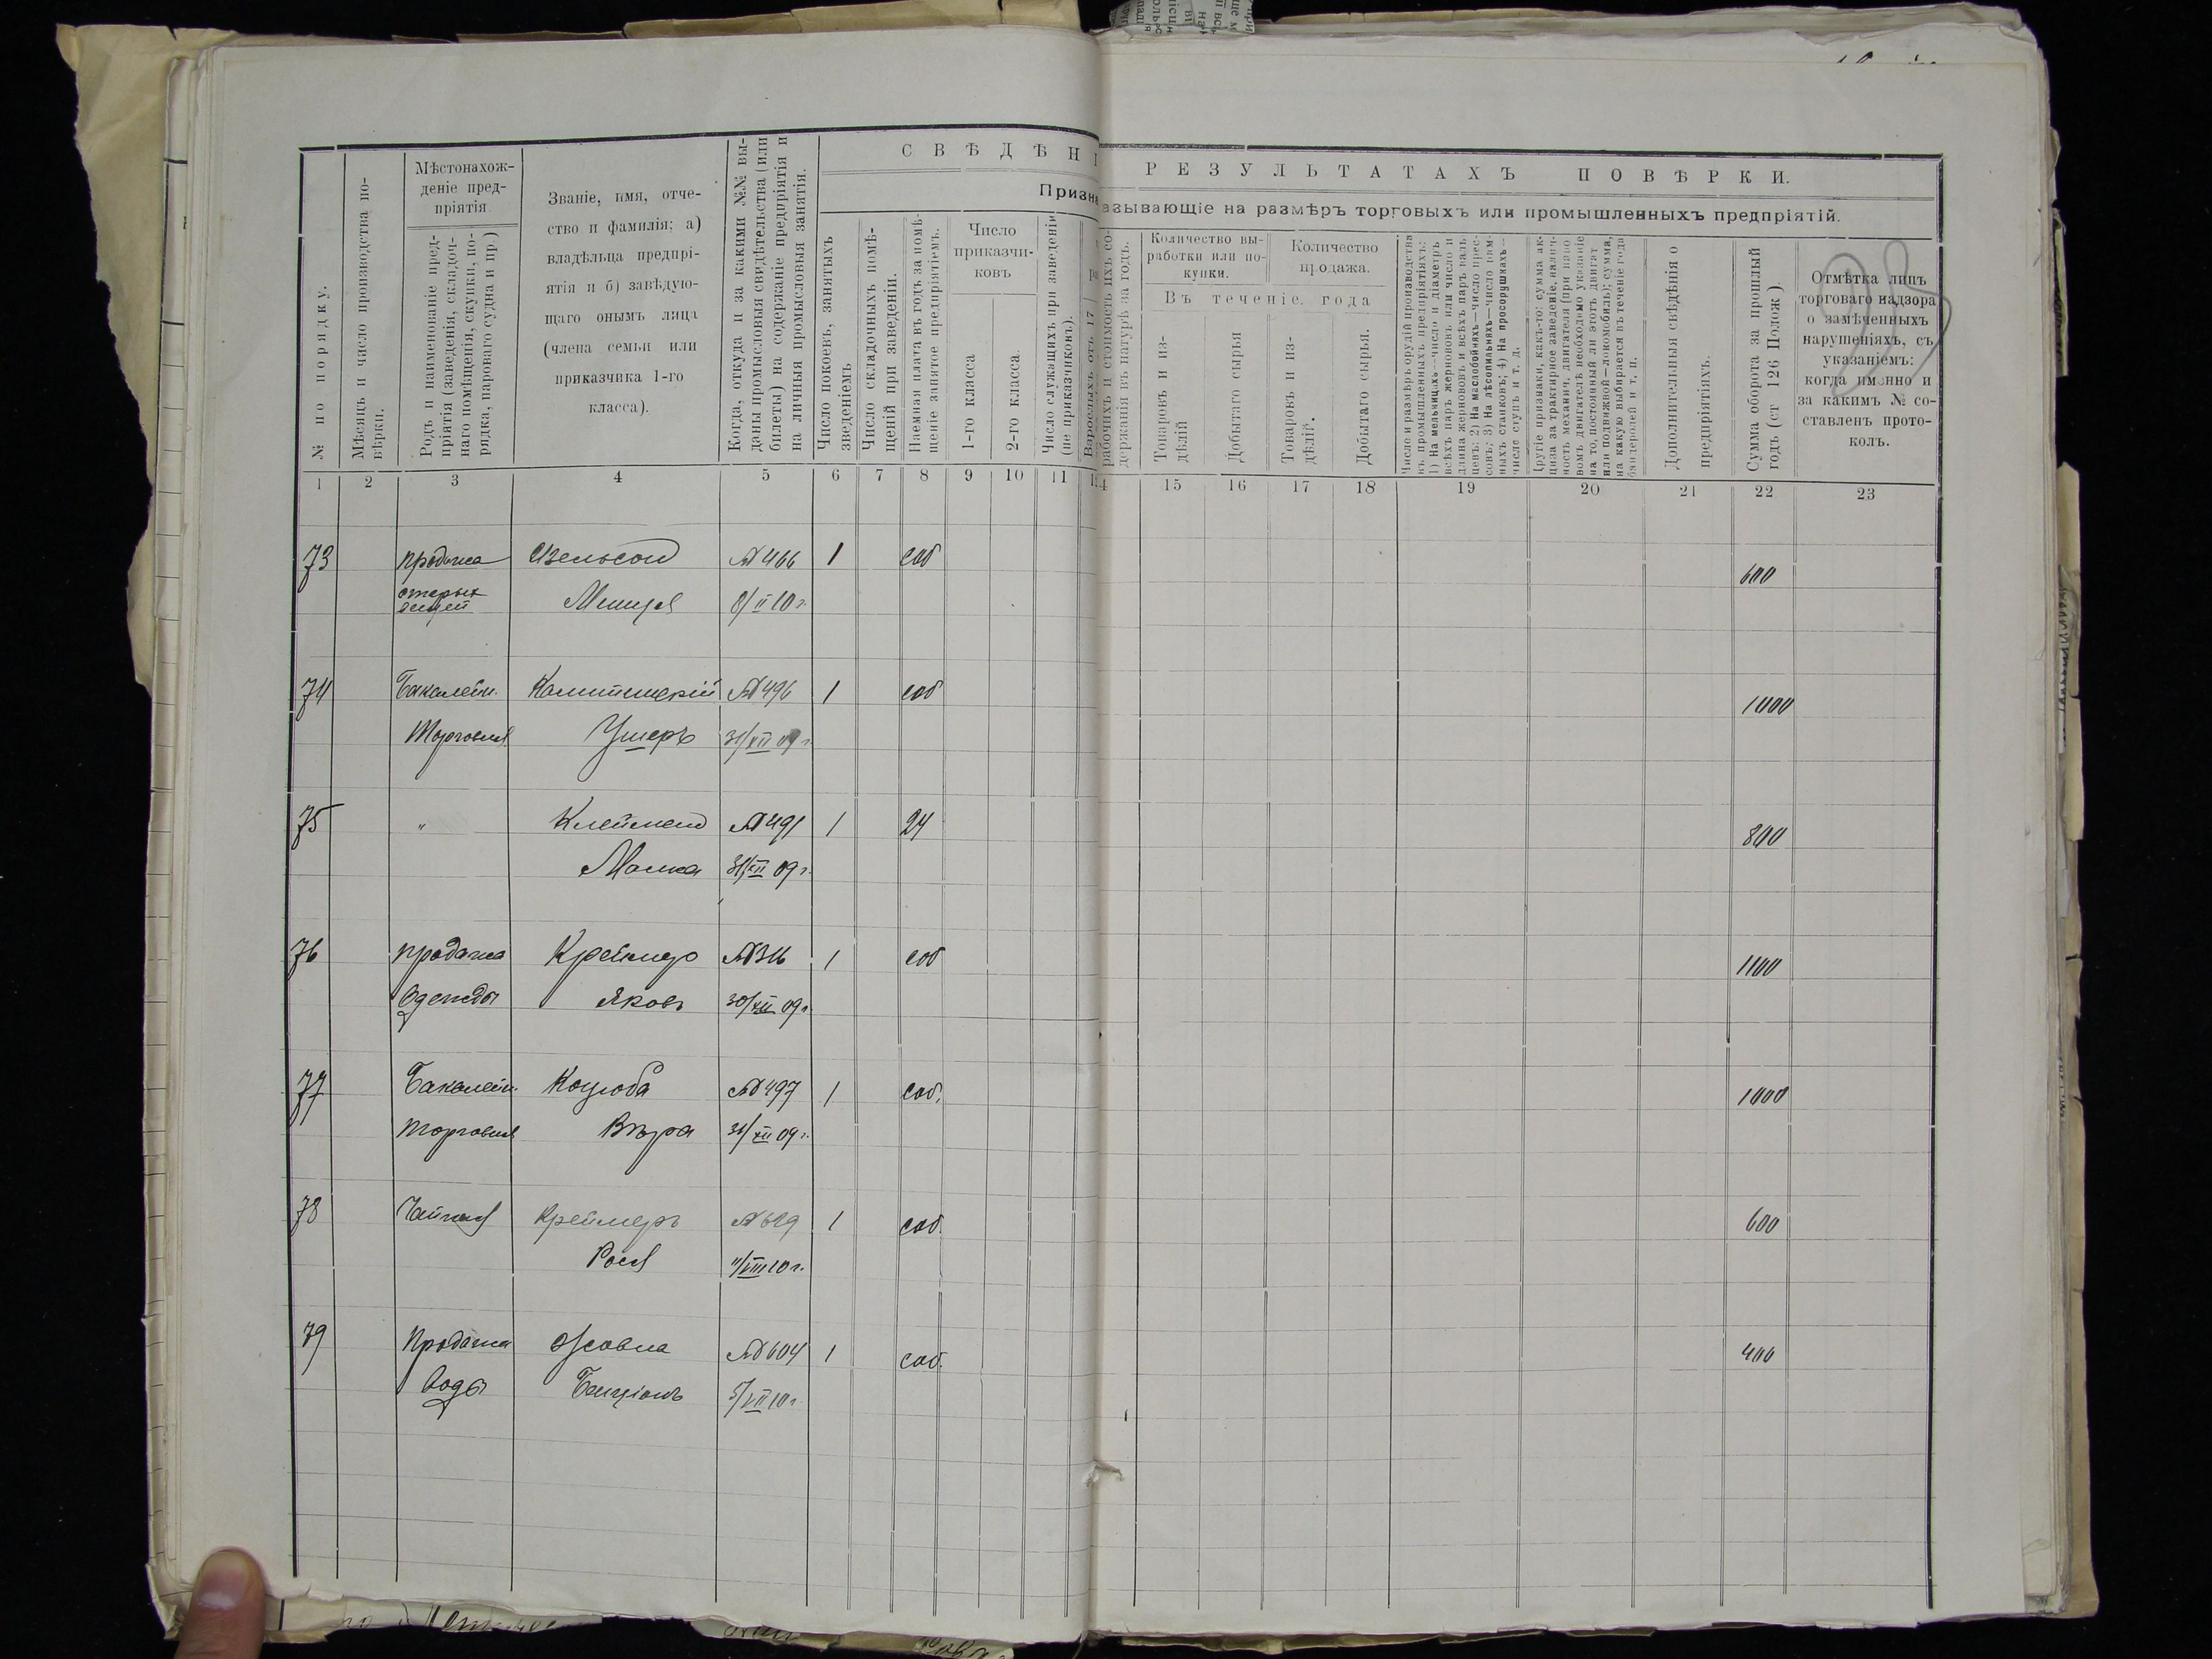 СВѢДѢНІ
РЕЗУЛЬТАТАХЪ ПОВѢРКИ.
Призна
азывающіе на размѣръ торговыхъ или промышленныхъ предпріятій.
№ по порядку.
Мѣсяцъ и число производства по-
вѣрки.
Мѣстонахож-
деніе пред-
пріятія
Родъ и наименованіе пред-
пріятія (заведенія, складоч-
наго помѣщенія, скупки, по-
рядка, парового судна и пр)
Званіе, имя, отче-
ство и фамилія; а)
владѣльца предпрі-
ятія и б) завѣдую-
щаго онымъ лица
(члена семьи или
приказчика 1-го
класса).
Когда, откуда и за какими №№ вы-
даны промысловыя свидѣтельства (или
билеты) на содержаніе предпріятія и
на личныя промысловыя занятія.
Число покоевъ, занятыхъ
зведеніемъ
Число складочныхъ помѣ-
щеній при заведеніи.
Наемная плата въ годъ за помѣ-
щеніе занятое предпріятіемъ.
Число
приказчи-
ковъ
1-го класса
2-го класса.
Число служащихъ при заведеніи
(не приказчиковъ).
Взрослыхъ отъ 17
рабочихъ и стоимость ихъ со-
держанія въ натурѣ за годъ.
Количество вы-
работки или по-
купки.
Количество
продажа.
Въ теченіе года
Товаровъ и из-
дѣлій
Добытаго сырья
Товаровъ и из-
дѣлій.
Добытаго сырья.
Число и размѣръ орудій производства
въ промышленныхъ предпріятіяхъ:
1) На мельницахъ—число и діаметръ
всѣхъ паръ жернововъ или число и
длина жернововъ и всѣхъ паръ валь
цевъ: 2) На маслобойняхъ—число прес-
совъ; 3) На лѣсопильняхъ—число рам-
ныхъ станковъ; 4) На просорушкахъ—
число ступъ и т. д.
Другіе признаки, какъ-то: сумма ак-
циза за трактирное заведеніе, налич-
ность механич. двигателя (при паро
вомъ двигателѣ необходимо указаніе
на то, постоянный ли этотъ двигат
или подвижной—локомобиль); сумма,
на какую выбирается въ теченіе года
бандеролей и т. п.
Дополнительныя свѣдѣнія о
предпріятіяхъ.
Сумма оборота за прошлый
годъ (ст 126 Полож ).
Отмѣтка лицъ
торговаго надзора
о замѣченныхъ
нарушеніяхъ, съ
указаніемъ:
когда именно и
за какимъ № со-
ставленъ прото-
колъ.
1 2 3 4 5 6 7 8 9 10 11 1 4 15 16 17 18 19 20 21 22 23
73 продажа № 466 1 соб 600
старых
вещей II 10 г.
74 Бакалейн. № 496 1 соб 1000
Торговля Ушеръ 31/XII 09 г.
75 " Клейменъ № 491 1 24 800
Малка 31/XII 09 г.
76 продажа № 316 1 соб 1100
Одежды Яковъ 30/XII 09 г.
77 Бакалейн. Коцюба № 497 1 соб. 1000
торговля Вѣра 31/XII 09 г.
78 Чайная Креймеръ № 629 1 соб. 600
Рося 11/VIII 10 г.
79 Продажа № 604 1 соб. 400
Воды Бенціонъ 5/VII 10 г.